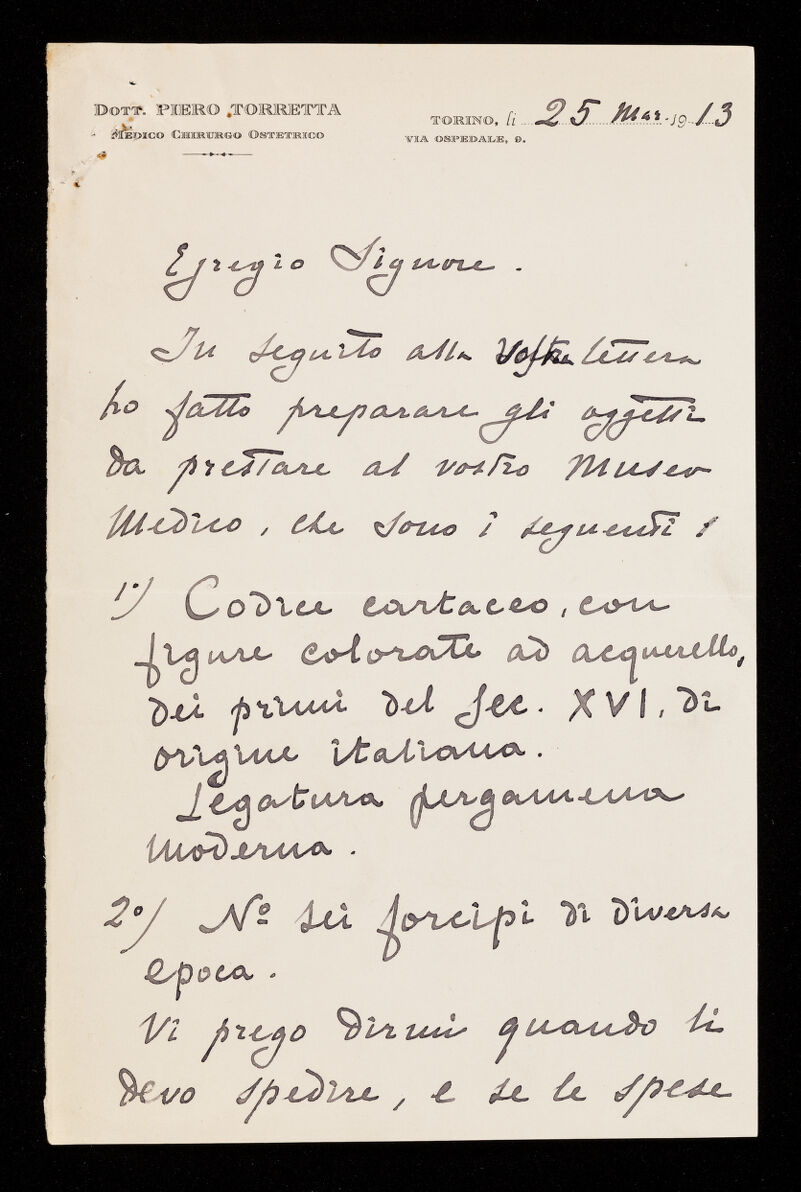 DOTT. PIERO TORRETTA
MEDICO CHIRURGO OSTETRICO
TORINO, li 25 Mar. 1913
VIA OSPEDALE, 9.
Egregio Signore.
In seguito alla vostra lettera
ho fatto preparare gli oggetti
da prestare al vostro Museo
Medico, che sono i seguenti:
1º) Codice cartaceo, con
figure colorate ad acquerello,
dei primi del sec. XVI, di
origine italiana.
Legatura pergamena
moderna.
2º) Nº sei forcipi di diversa
epoca.
Vi prego dirmi quando li
devo spedire, e se le spese